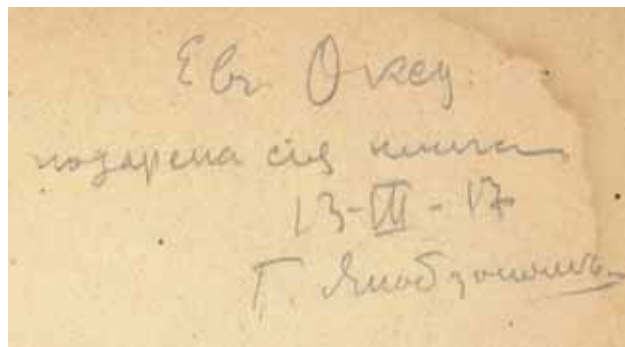 Евг Оксу
подарена сия книга
13-III-17
Г. Якобзономъ